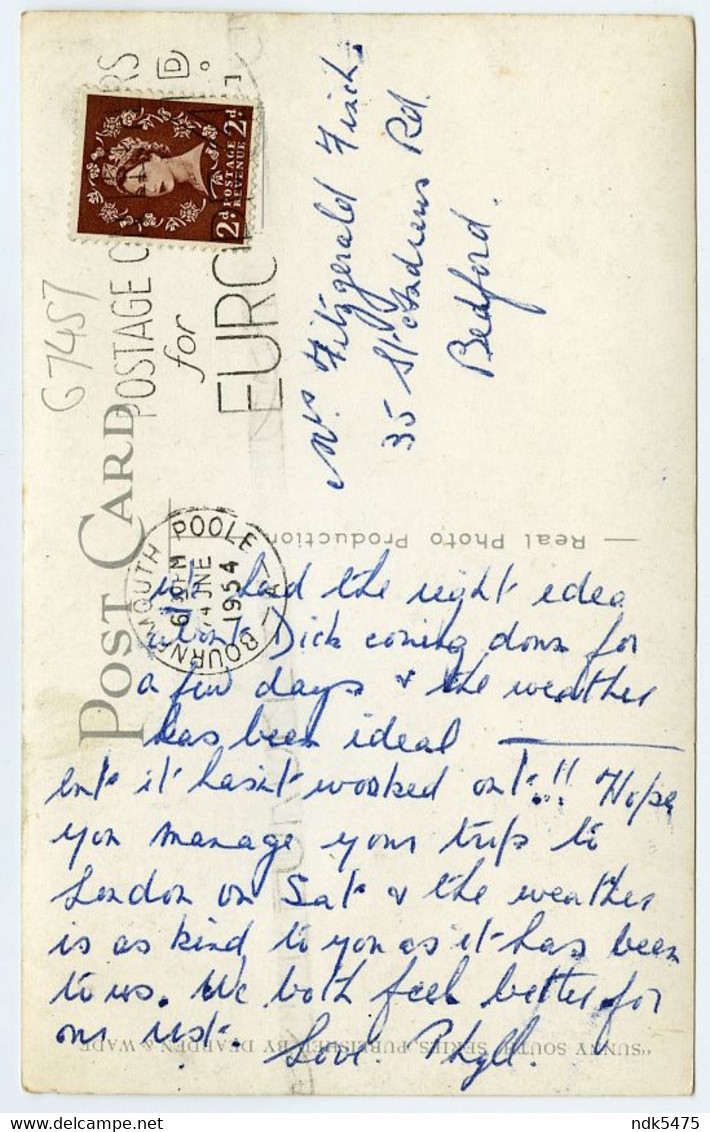 POSTAGE
for
EURO
2d POSTAGE REVENUE 2d
67457
POST CARD
BOURNEMOUTH POOLE A
6 30 PM
JNE
1954
Mrs Fitzgerald Finch.
35 St Andrews Rd.
Bedford.
— Real Photo Production
had the right idea
about Dick coming down for
a few days & the weather
has been ideal ——
but it hasn't worked out!! Hope
you manage your trip to
London on Sat & the weather
is as kind to you as it has been
to us. We both feel better for
our rest. Love. Phyll.
"SUNNY SOUTH" SERIES, PUBLISHED BY DEARDEN & WADE
ndk5475